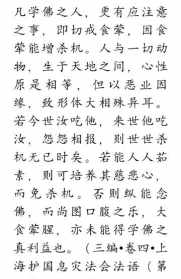 凡学佛之人，更有应注意
之事，即切戒食荤，因食
荤能增杀机。人与一切动
物，生于天地之间，心性
原是相等，但以恶业因
缘，致形体大相殊异耳。
若今世汝吃他，来世他吃
汝，怨怨相报，则世世杀
机无已时矣。若能人人茹
素，则可培养其慈悲心，
而免杀机。否则纵能念
佛，而尚图口腹之乐，大
食荤腥，亦未能得学佛之
真利益也。（三编•卷四•上
海护国息灾法会法语（第